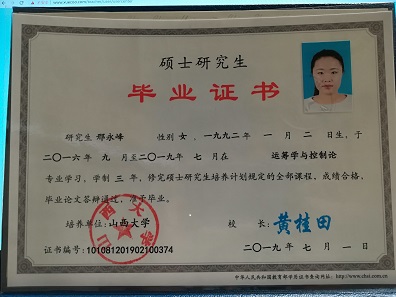 硕士研究生
毕业证书
研究生 邢永峰 性别 女，一九九二年 一 月 二 日生，于
二〇一六年 九 月至二〇一九年 七 月在 运筹学与控制论
专业学习，学制 三 年，修完硕士研究生培养计划规定的全部课程，成绩合格，
毕业论文答辩通过，准予毕业。
培养单位：山西大学 校 长：黄桂田
证书编号：101081201902100374 二〇一九年 七 月 一 日
中华人民共和国教育部学历证书查询网址：http://www.chsi.com.cn